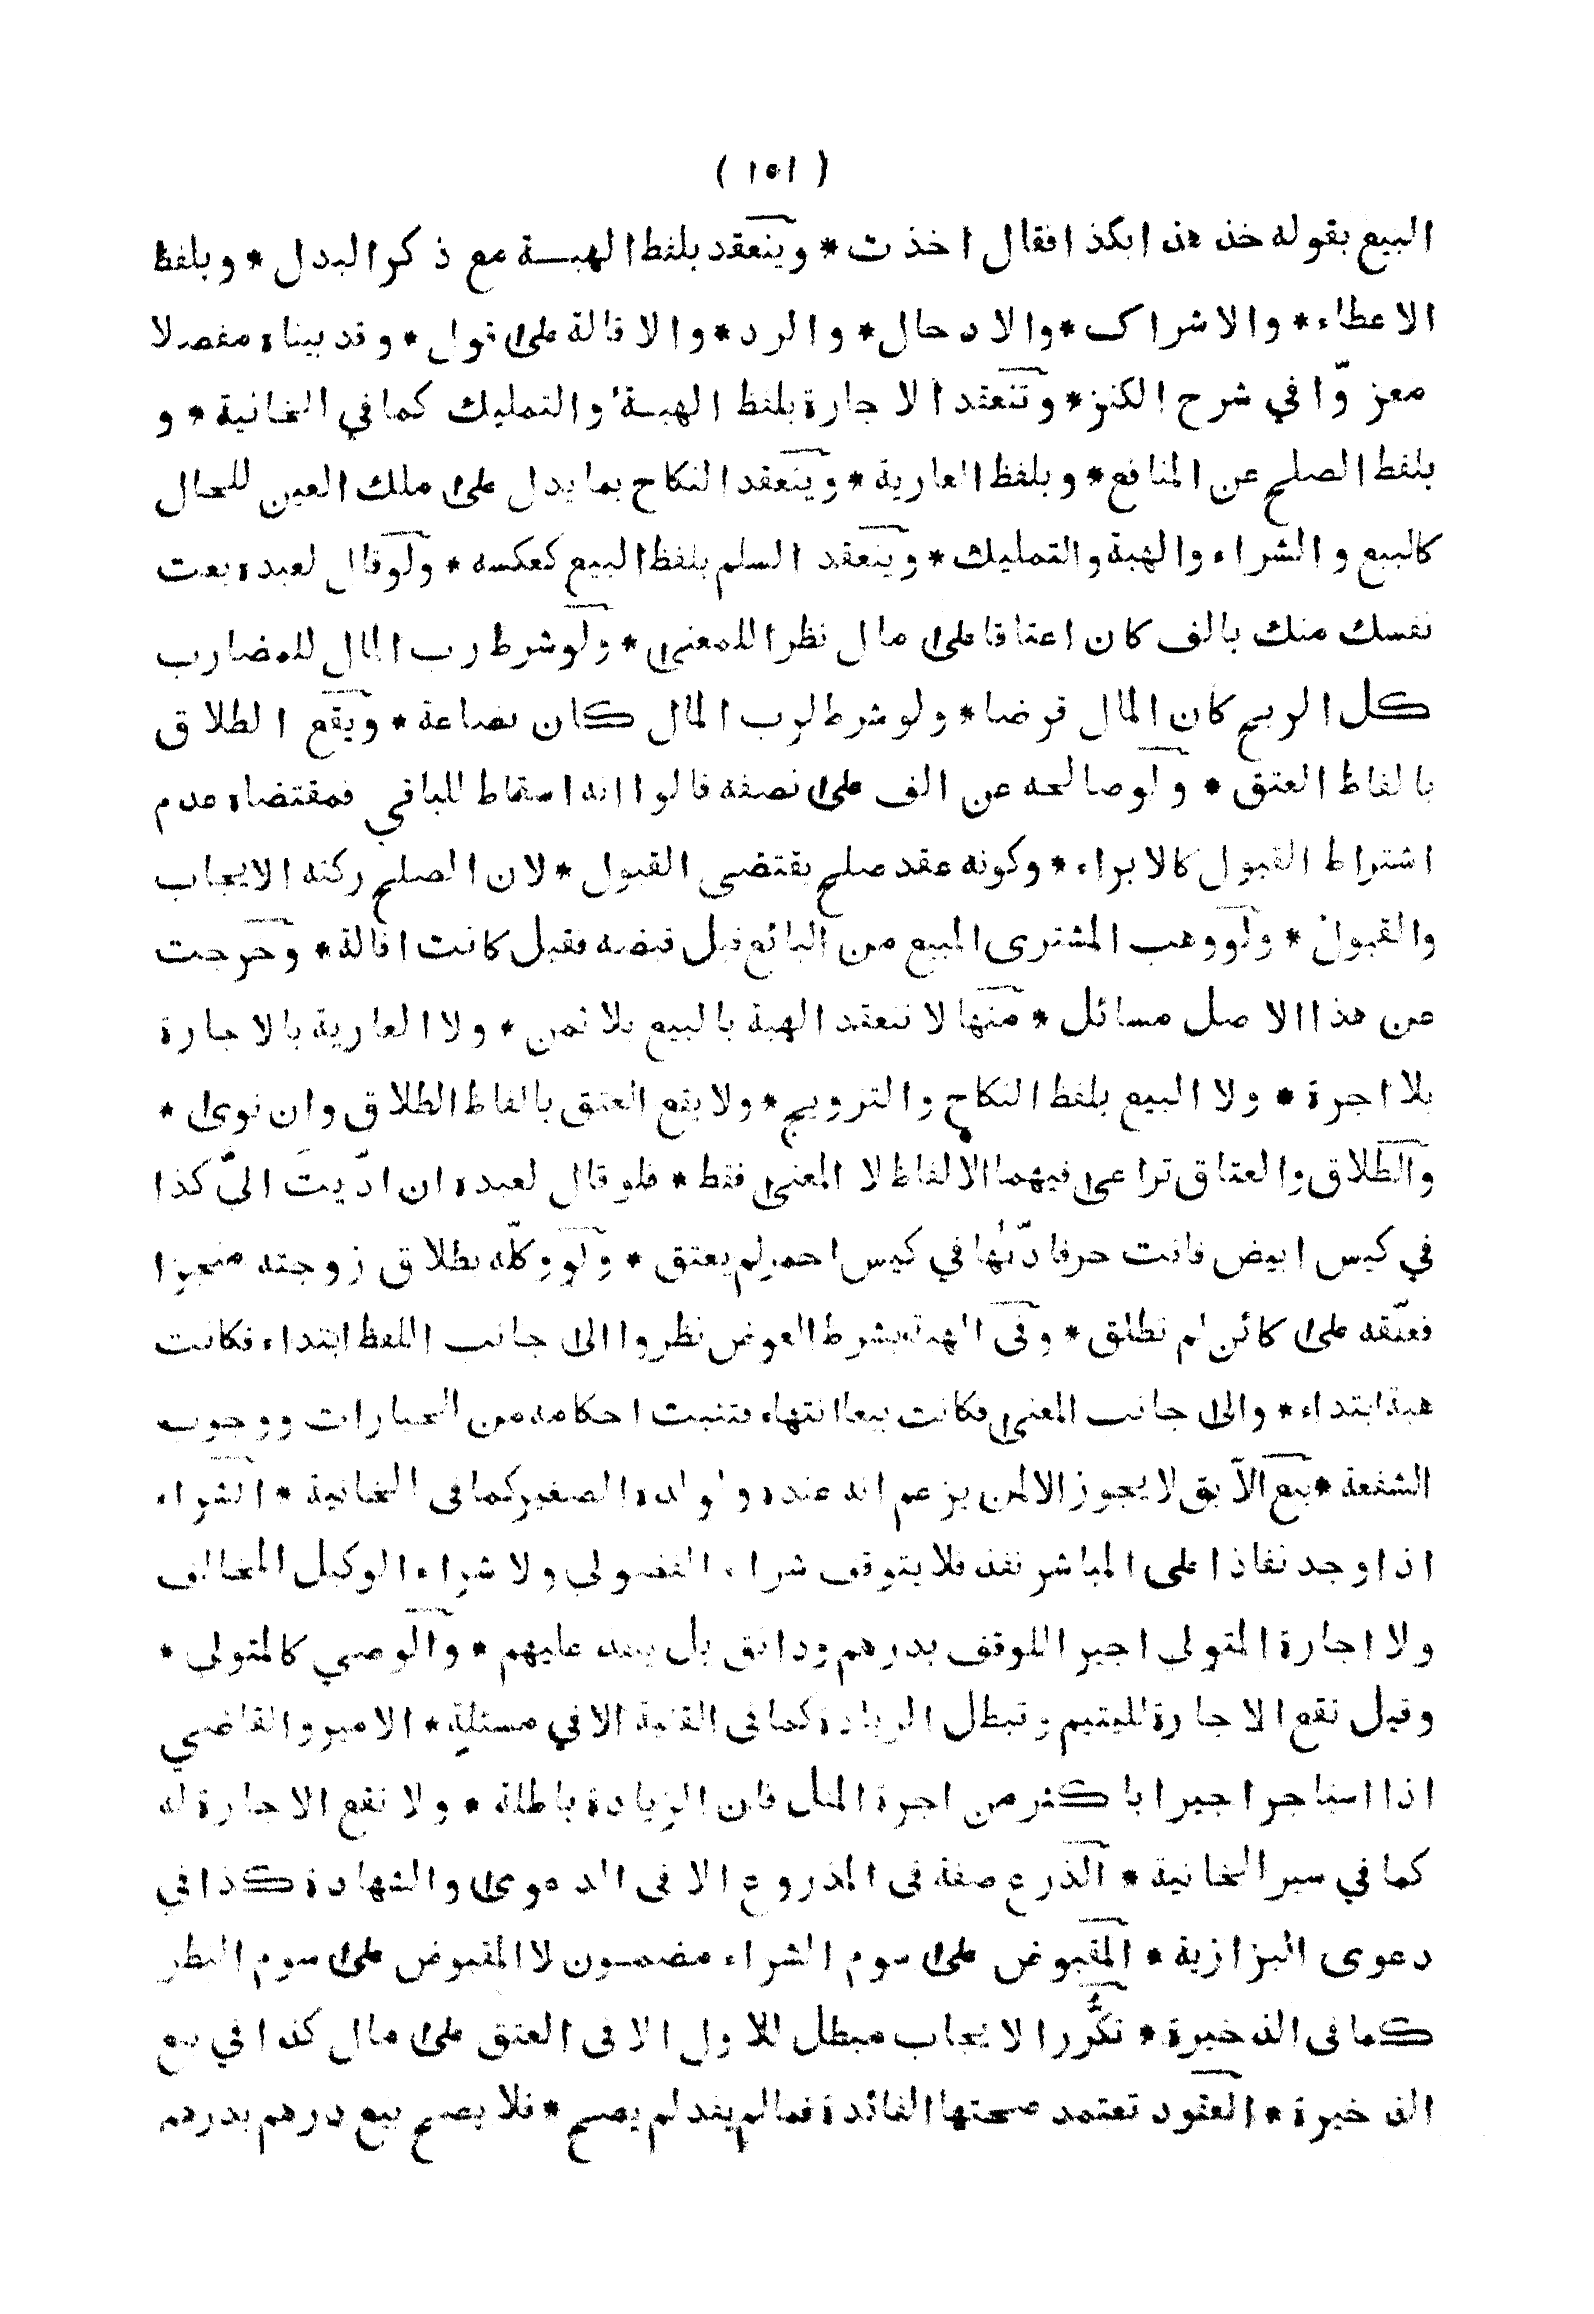 ( ١٥١ )
البيع بقوله خذ هذا بكذا فقال اخذت * وينعقد بلفظ الهبة مع ذكر البدل * وبلفظ
الاعطاء * والاشراك * والادخال * والرد * والاقالة على قول * وقد بيناه مفصلا
معزوّا في شرح الكنز * وتنعقد الاجارة بلفظ الهبة والتمليك كما في الخانية * و
بلفظ الصلح عن المنافع * وبلفظ العارية * وينعقد النكاح بما يدل على ملك العين للحال
كالبيع والشراء والهبة والتمليك * وينعقد السلم بلفظ البيع كعكسه * ولو قال لعبده بعت
نفسك منك بالف كان اعتاقا على مال نظرا للمعنى * ولو شرط رب المال للمضارب
كل الربح كان المال قرضا * ولو شرط لرب المال كان بضاعة * ويقع الطلاق
بالفاظ العتق * ولو صالحه عن الف على نصفه قالوا انه اسقاط للباقي فمقتضاه عدم
اشتراط القبول كالابراء * وكونه عقد صلح يقتضى القبول * لان الصلح ركنه الايجاب
والقبول * ولو وهب المشترى المبيع من البائع قبل قبضه فقبل كانت اقالة * وخرجت
من هذا الاصل مسائل * منها لا تنعقد الهبة بالبيع بلا ثمن * ولا العارية بالاجارة
بلا اجرة * ولا البيع بلفظ النكاح والتزويج * ولا يقع العتق بالفاظ الطلاق وان نوى *
والطلاق والعتاق تراعى فيهما الالفاظ لا المعنى فقط * فلو قال لعبده ان ادّيتَ اليَّ كذا
في كيس ابيض فانت حر فادّنها في كيس احمر لم يعتق * ولو وكّله بطلاق زوجته منجزا
فعلّقه على كائن لم تطلق * وفى الهبة بشرط العوض نظروا الى جانب اللفظ ابتداء فكانت
هبة ابتداء * والى جانب المعنى فكانت بيعا انتهاء فتثبت احكامه من الخيارات ووجوب
الشفعة * بيع الآبق لا يجوز الا لمن يزعم انه عنده ولولده الصغير كما فى الخانية * الشراء
اذا وجد نفاذا على المباشر نفذ فلا يتوقف شراء الفضولي ولا شراء الوكيل المخالف
ولا اجارة المتولي اجيرا للوقف بدرهم ودانق بل ينفذ عليهم * والوصي كالمتولي *
وقيل تقع الاجارة لليتيم وتبطل الزيادة كما فى القنية الا في مسئلة * الامير والقاضي
اذا استاجر اجيرا باكثر من اجرة المثل فان الزيادة باطلة * ولا تقع الاجارة له
كما في سير الخانية * الذرع صفة فى المذروع الا فى الدعوى والشهادة كذا في
دعوى البزازية * المقبوض على سوم الشراء مضمون لا المقبوض على سوم النظر
كما فى الذخيرة * تكرّر الايجاب مبطل للاول الا فى العتق على مال كذا في بيع
الذخيرة * العقود تعتمد صحتها الفائدة فما لم يفد لم يصح * فلا يصح بيع درهم بدرهم